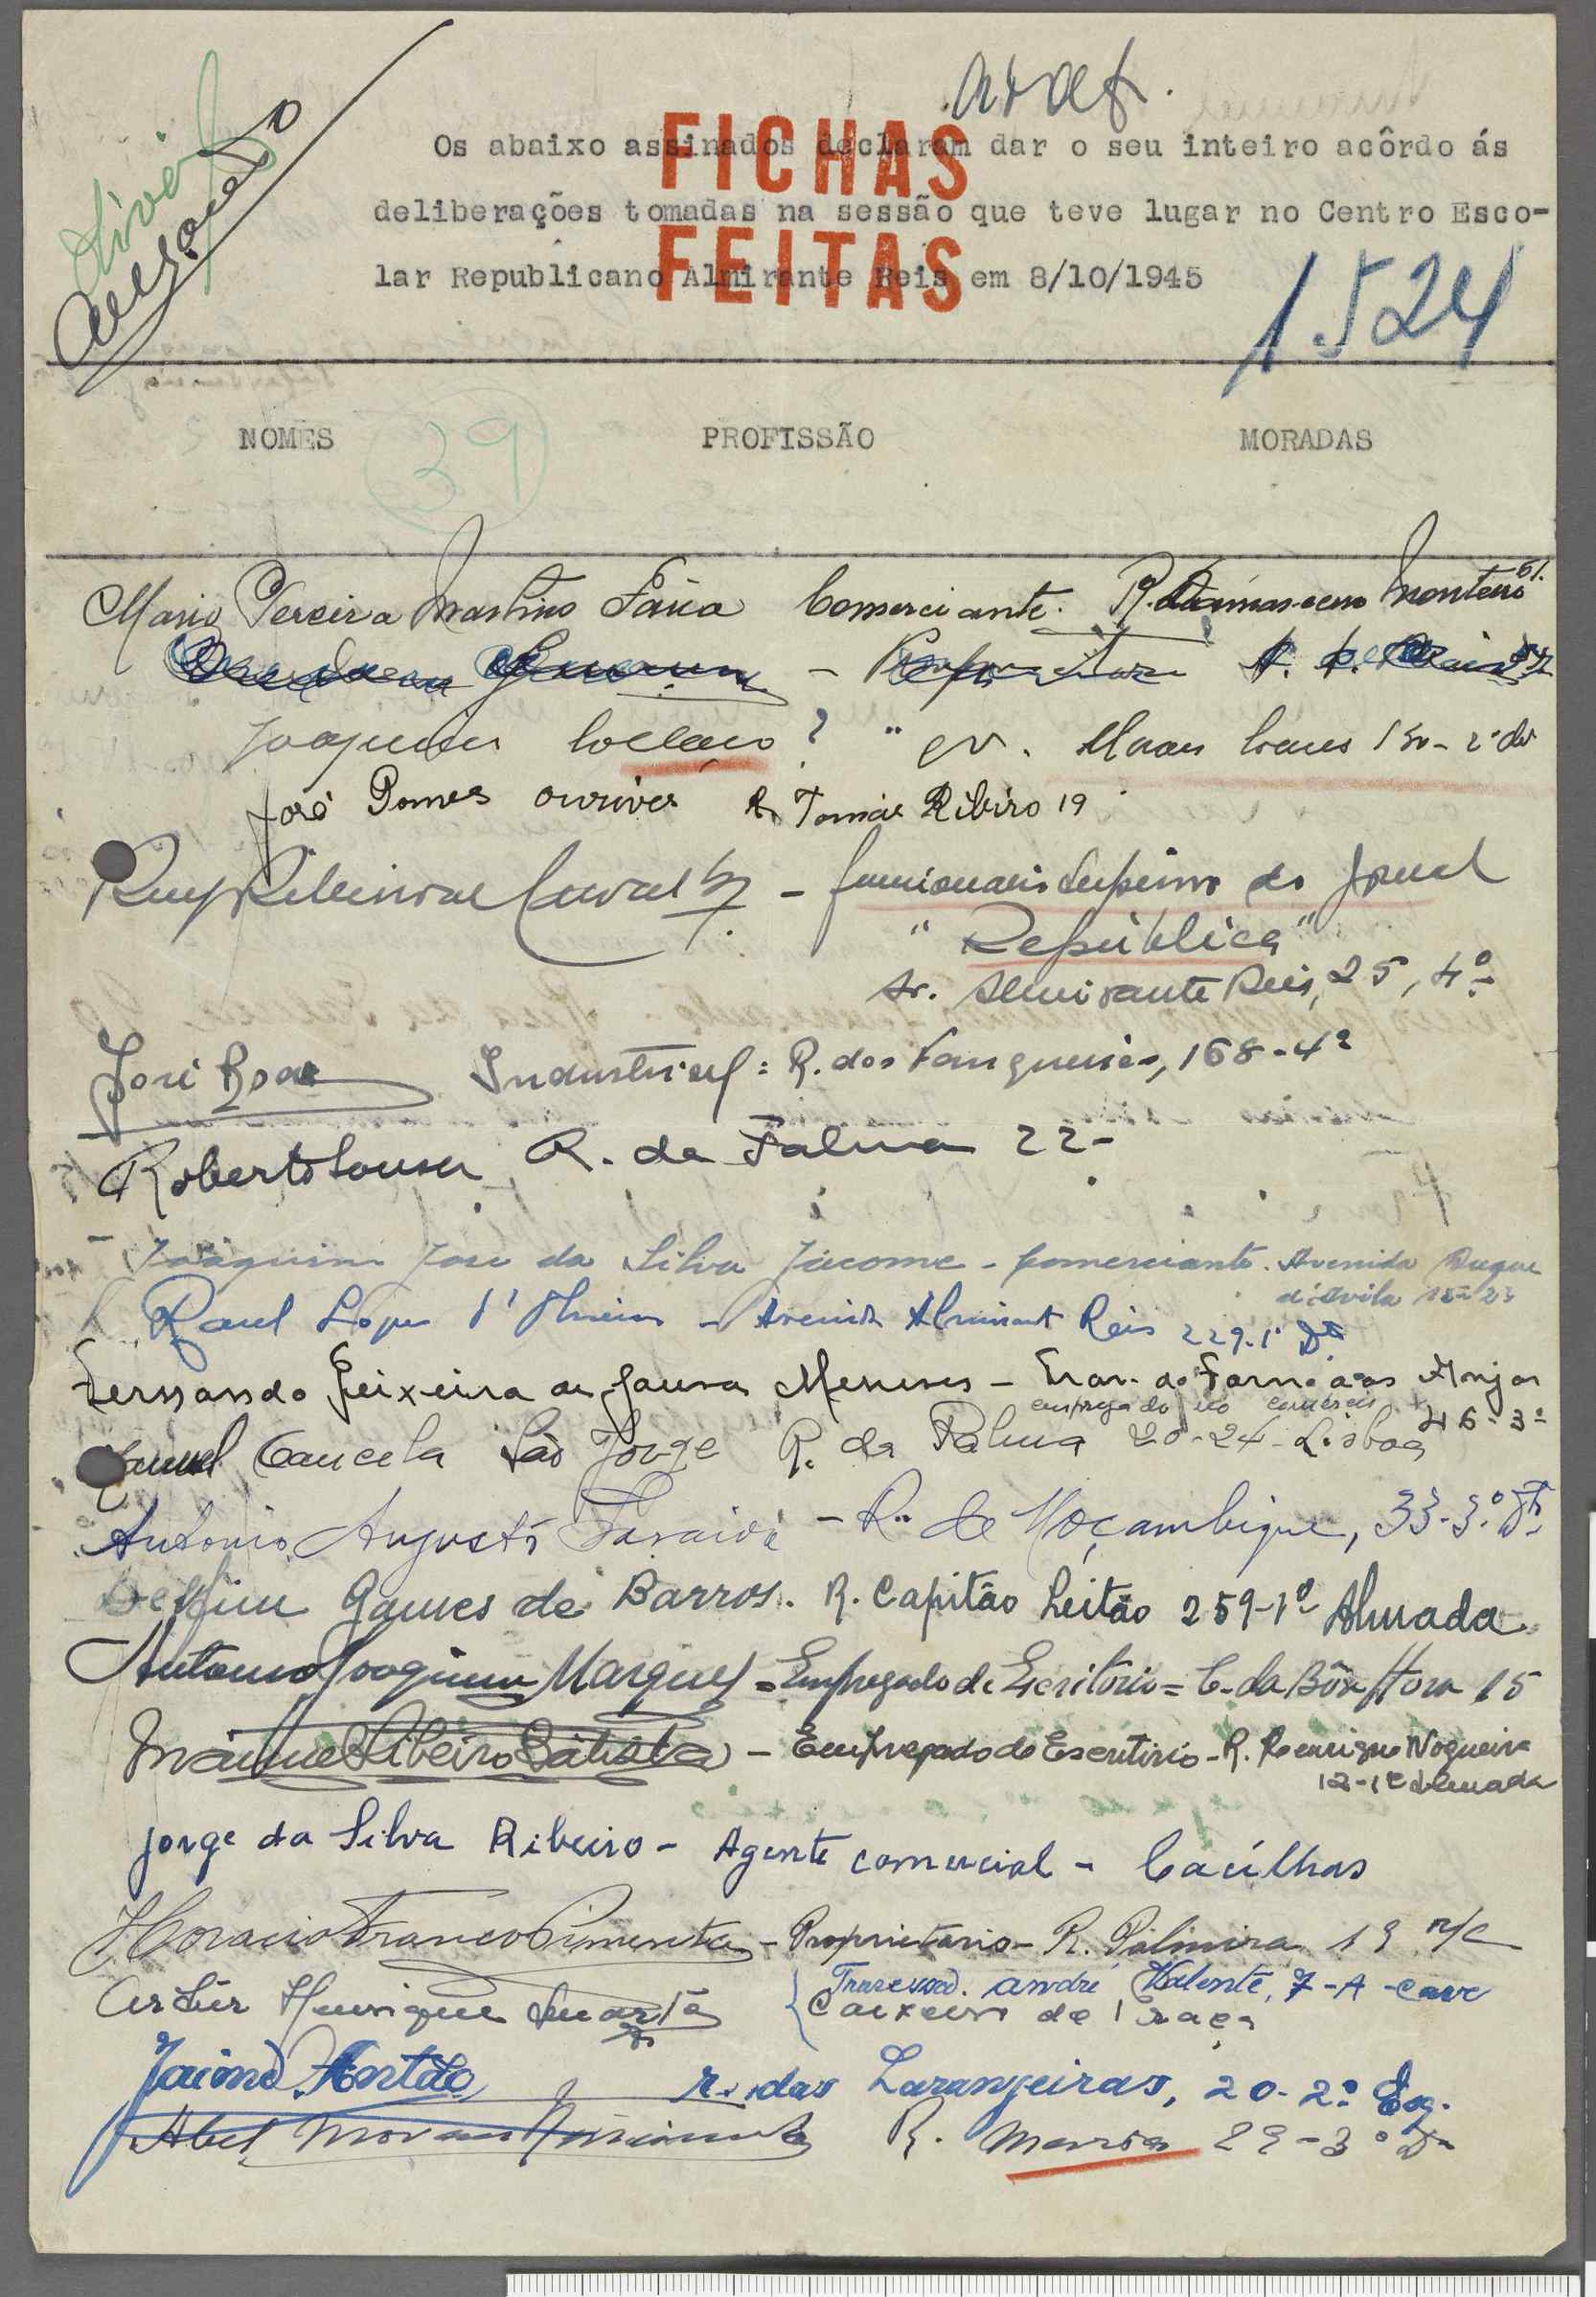 Os abaixo assinados declaram dar o seu inteiro acôrdo ás
deliberações tomadas na sessão que teve lugar no Centro Esco-
lar Republicano Almirante Reis em 8/10/1945
FICHAS
FEITAS
1.524
NOMES PROFISSÃO MORADAS
39
Mario Pereira Martins Comerciante. R. Damasceno Monteiro 61.
Joaquim
José Gomes ourives R. Tomás Ribeiro 19
Ruy - do Jornal
"República"
Av. Almirante Reis, 25, 4º
José Industrial: R. dos Fanqueiros, 168-4º
Roberto Sousa R. da Palma 22-
Joaquim José da Silva Jácome - comerciante. Avenida Duque
d'Avila
Raul Lopes d'Oliveira - Avenida Almirante Reis 229-1º Dto
Fernando Teixeira de Sousa Meneses - Trav. do Forno aos Anjos
empregado no comércio 46-3º
Cancela São Jorge R. da Palma 20-24-Lisboa
Antonio Augusto Saraiva - R. de Moçambique, 33-3.º Dto
Delfim Gomes de Barros. R. Capitão Leitão 259-1º Almada
Antonio Joaquim Marques = Empregado de Escritório = C. da Bôa Hora 15
Manuel Ribeiro Batista - Empregado de Escritório - R. Henrique Nogueira
12-1º Almada
Jorge da Silva Ribeiro - Agente comercial - Cacilhas
Horacio Franco Pimenta - Proprietario - R. Palmira 19 r/c
Artur Henrique Duarte { Travessa André Valente, 7-A-cave
Caixeiro de Praça
Jaime Antão r. das Laranjeiras, 20-2º Esq.
Abel R. 29-3º D